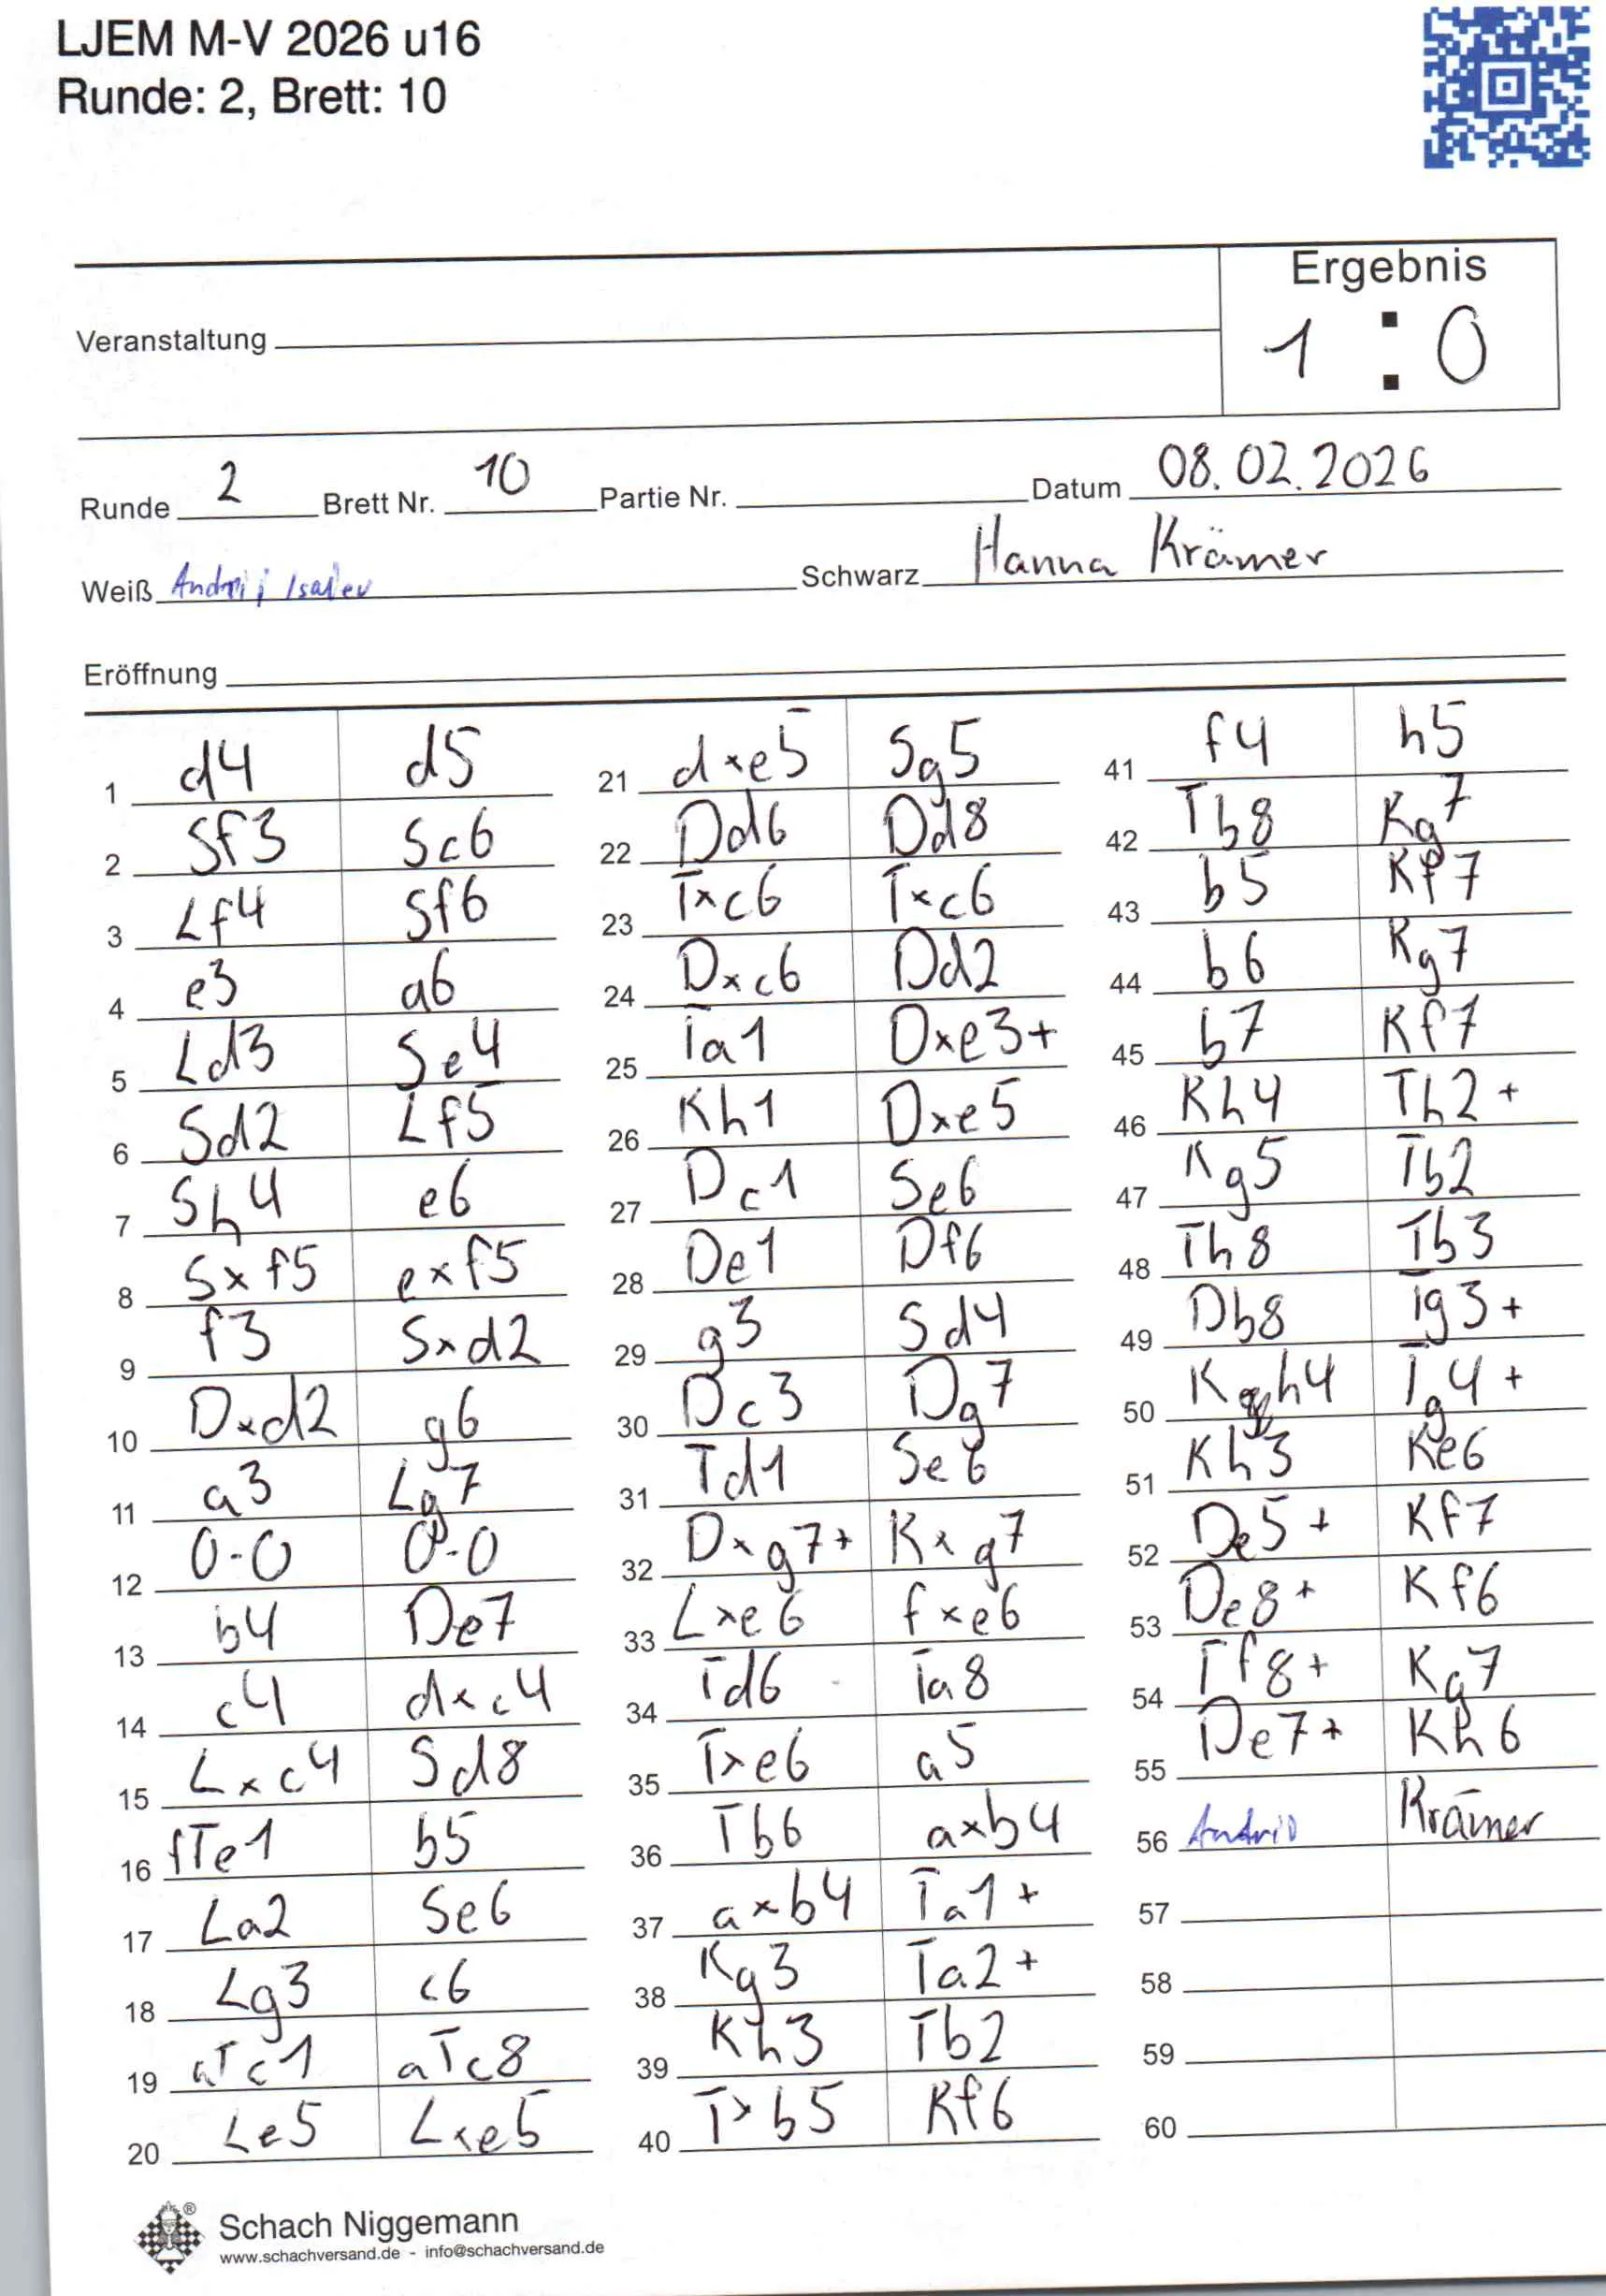 LJEM M-V 2026 u16
Runde: 2, Brett: 10
Ergebnis
1 : 0
Veranstaltung
Runde 2 Brett Nr. 10 Partie Nr. Datum 08.02.2026
Weiß Andrij Isaiev Schwarz Hanna Krämer
Eröffnung
1 d4 d5
2 Sf3 Sc6
3 Lf4 Sf6
4 e3 a6
5 Ld3 Se4
6 Sd2 Lf5
7 Sh4 e6
8 Sxf5 exf5
9 f3 Sxd2
10 Dxd2 g6
11 a3 Lg7
12 0-0 0-0
13 b4 De7
14 c4 dxc4
15 Lxc4 Sd8
16 fTe1 b5
17 La2 Se6
18 Lg3 c6
19 aTc1 aTc8
20 Le5 Lxe5
21 dxe5 Sg5
22 Dd6 Dd8
23 Txc6 Txc6
24 Dxc6 Dd2
25 Ta1 Dxe3+
26 Kh1 Dxe5
27 Dc1 Se6
28 De1 Df6
29 g3 Sd4
30 Dc3 Dg7
31 Td1 Se6
32 Dxg7+ Kxg7
33 Lxe6 fxe6
34 Td6 Ta8
35 Txe6 a5
36 Tb6 axb4
37 axb4 Ta1+
38 Kg3 Ta2+
39 Kh3 Tb2
40 Txb5 Kf6
41 f4 h5
42 Tb8 Kg7
43 b5 Kf7
44 b6 Kg7
45 b7 Kf7
46 Kh4 Th2+
47 Kg5 Tb2
48 Th8 Tb3
49 Db8 Tg3+
50 Kh4 Tg4+
51 Kh3 Ke6
52 De5+ Kf7
53 De8+ Kf6
54 Tf8+ Kg7
55 De7+ Kh6
56 Andrii Krämer
57
58
59
60
Schach Niggemann
www.schachversand.de - info@schachversand.de